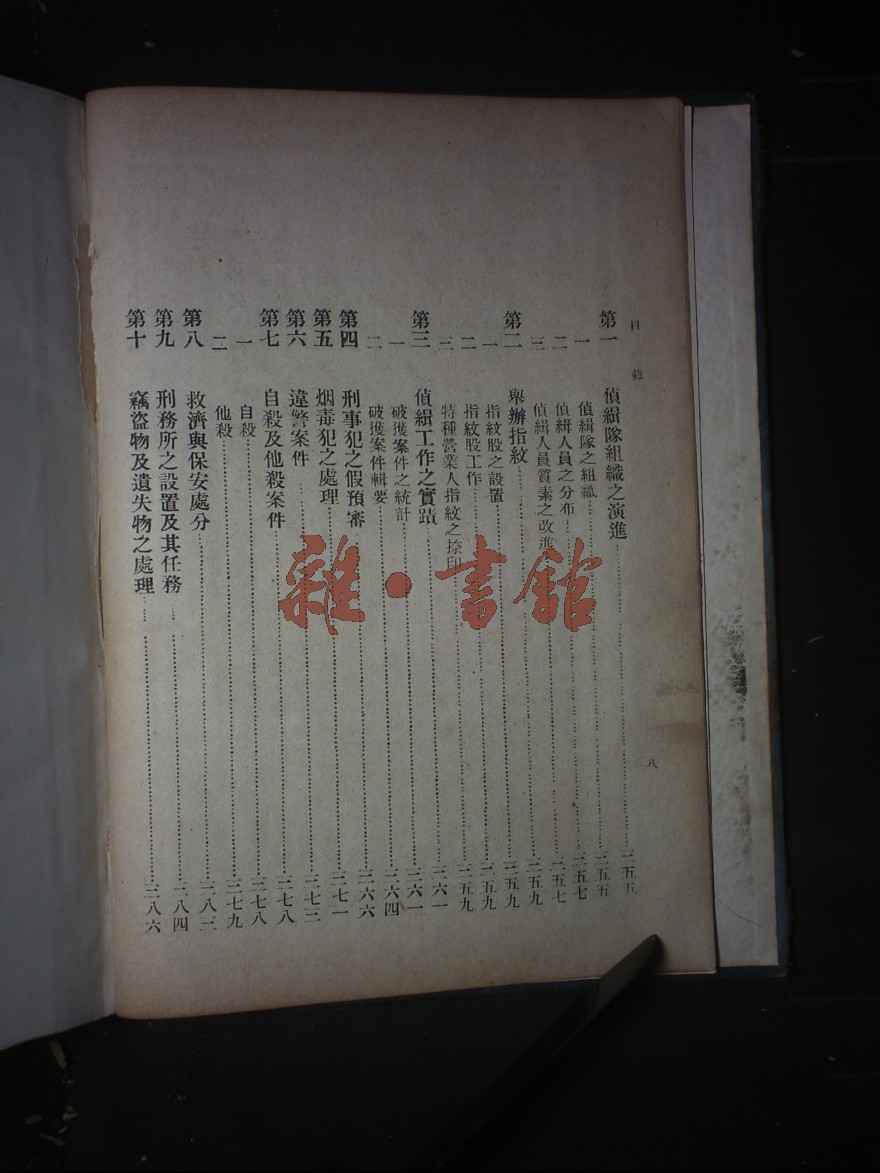 目錄
八
第一 偵緝隊組織之演進……三五五
一 偵緝隊之組織……三五五
二 偵緝人員之分布……三五七
三 偵緝人員質素之改進……三五七
第二 舉辦指紋……三五九
一 指紋股之設置……三五九
二 指紋股工作……三五九
三 特種營業人指紋之捺印……三五九
第三 偵緝工作之實蹟……三六一
一 破獲案件之統計……三六一
二 破獲案件輯要……三六四
第四 刑事犯之假預審……三六六
第五 烟毒犯之處理……三七一
第六 違警案件……三七三
第七 自殺及他殺案件……三七八
一 自殺……三七八
二 他殺……三七九
第八 救濟與保安處分……三八三
第九 刑務所之設置及其任務……三八四
第十 竊盜物及遺失物之處理……三八六
雜·書館